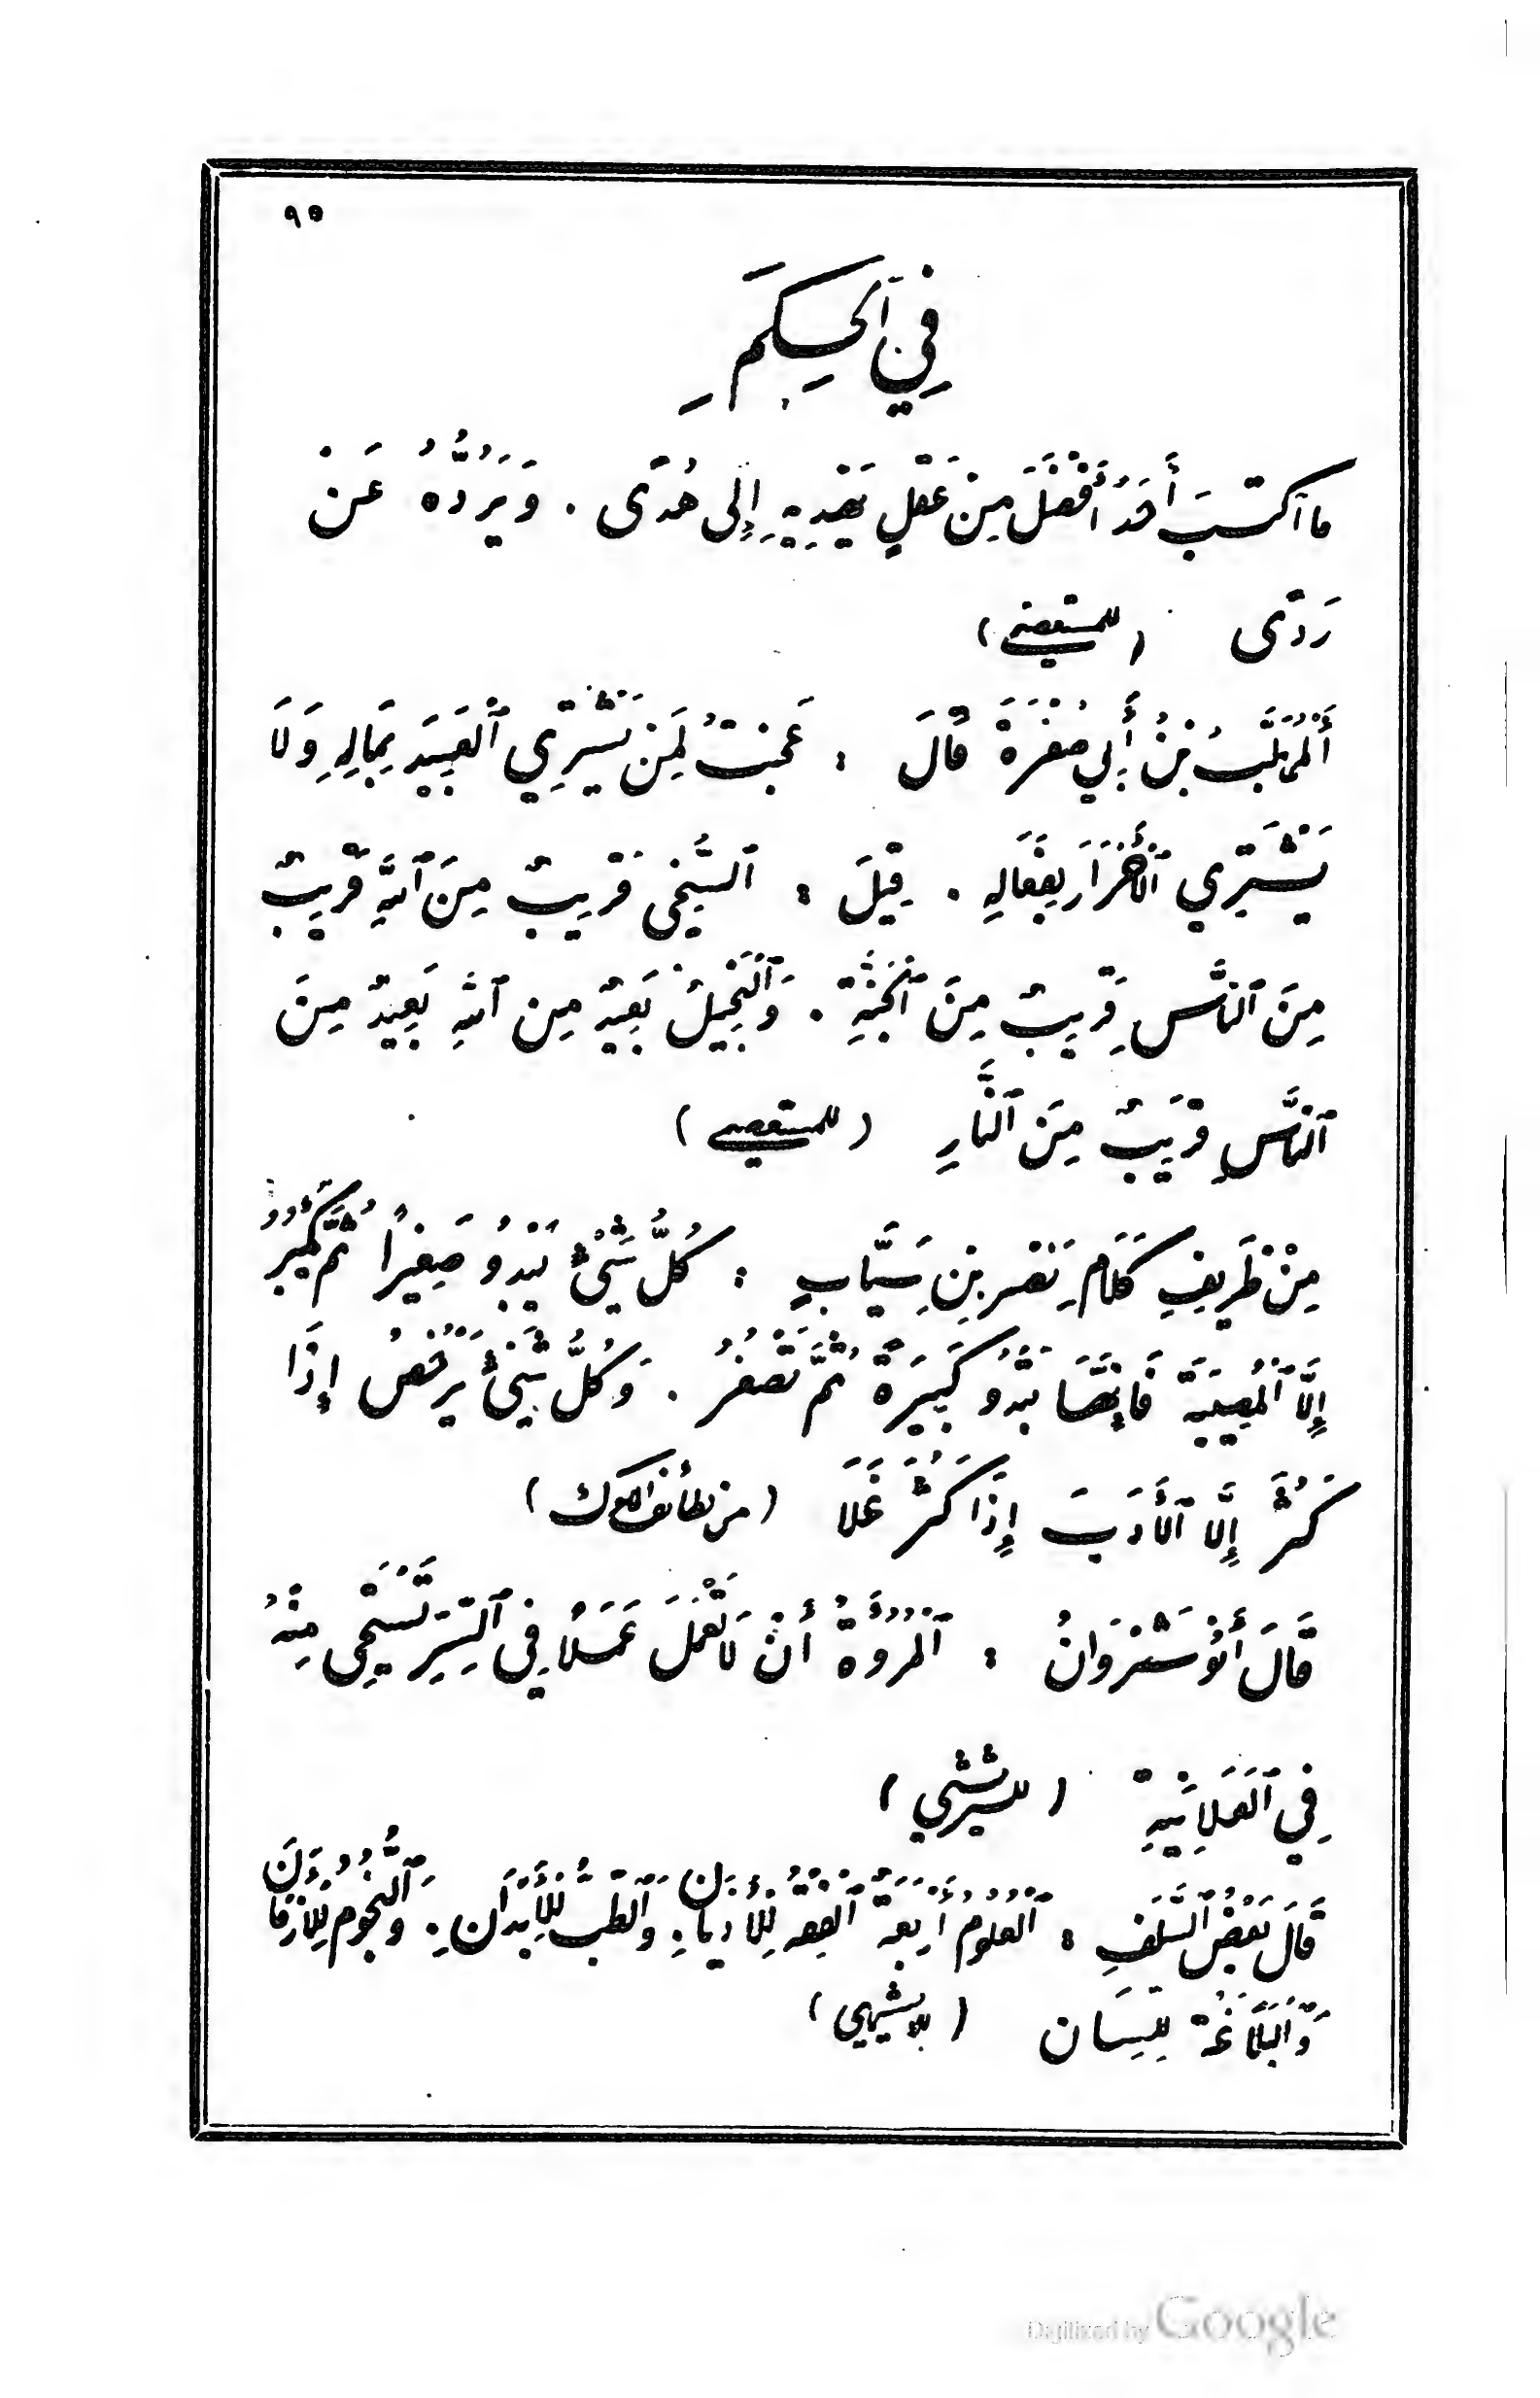 ٩٥
فِي ٱلْحِكَمِ
مَا ٱكْتَسَبَ أَحَدٌ أَفْضَلَ مِنْ عَقْلٍ يَهْدِيهِ إِلَى هُدًى . وَيَرُدُّهُ عَنْ
رَدًى (للمستعصمي)
أَلْمُهَلَّبُ بْنُ أَبِي صُفْرَةَ قَالَ : عَجِبْتُ لِمَنْ يَشْتَرِي ٱلْعَبِيدَ بِمَالِهِ وَلَا
يَشْتَرِي ٱلْأَحْرَارَ بِفَعَالِهِ . قِيلَ : ٱلسَّخِيُّ قَرِيبٌ مِنَ ٱللهِ قَرِيبٌ
مِنَ ٱلنَّاسِ قَرِيبٌ مِنَ ٱلْجَنَّةِ . وَٱلْبَخِيلُ بَعِيدٌ مِنَ ٱللهِ بَعِيدٌ مِنَ
ٱلنَّاسِ قَرِيبٌ مِنَ ٱلنَّارِ (للمستعصمي)
مِنْ ظَرِيفِ كَلَامِ نَصْرِ بْنِ سَيَّابٍ : كُلُّ شَيْءٍ يَبْدُو صَغِيرًا ثُمَّ يَكْبُرُ
إِلَّا ٱلْمُصِيبَةَ فَإِنَّهَا تَبْدُو كَبِيرَةً ثُمَّ تَصْغُرُ . وَكُلُّ شَيْءٍ يَرْخُصُ إِذَا
كَثُرَ إِلَّا ٱلْأَدَبَ إِذَا كَثُرَ غَلَا (من لطائف الملوك)
قَالَ أَنُوشَرْوَانُ : ٱلْمُرُوَّةُ أَنْ لَا تَعْمَلَ عَمَلًا فِي ٱلسِّرِّ تَسْتَحِي مِنْهُ
فِي ٱلْعَلَانِيَةِ (للشريشي)
قَالَ بَعْضُ ٱلسَّلَفِ : ٱلْعُلُومُ أَرْبَعَةٌ ٱلْفِقْهُ لِلْأَدْيَانِ . وَٱلطِّبُّ لِلْأَبْدَانِ . وَٱلنُّجُومُ لِلْأَزْمَانِ
وَٱلْبَلَاغَةُ لِلِّسَانِ (للابشيهي)
Digitized by Google